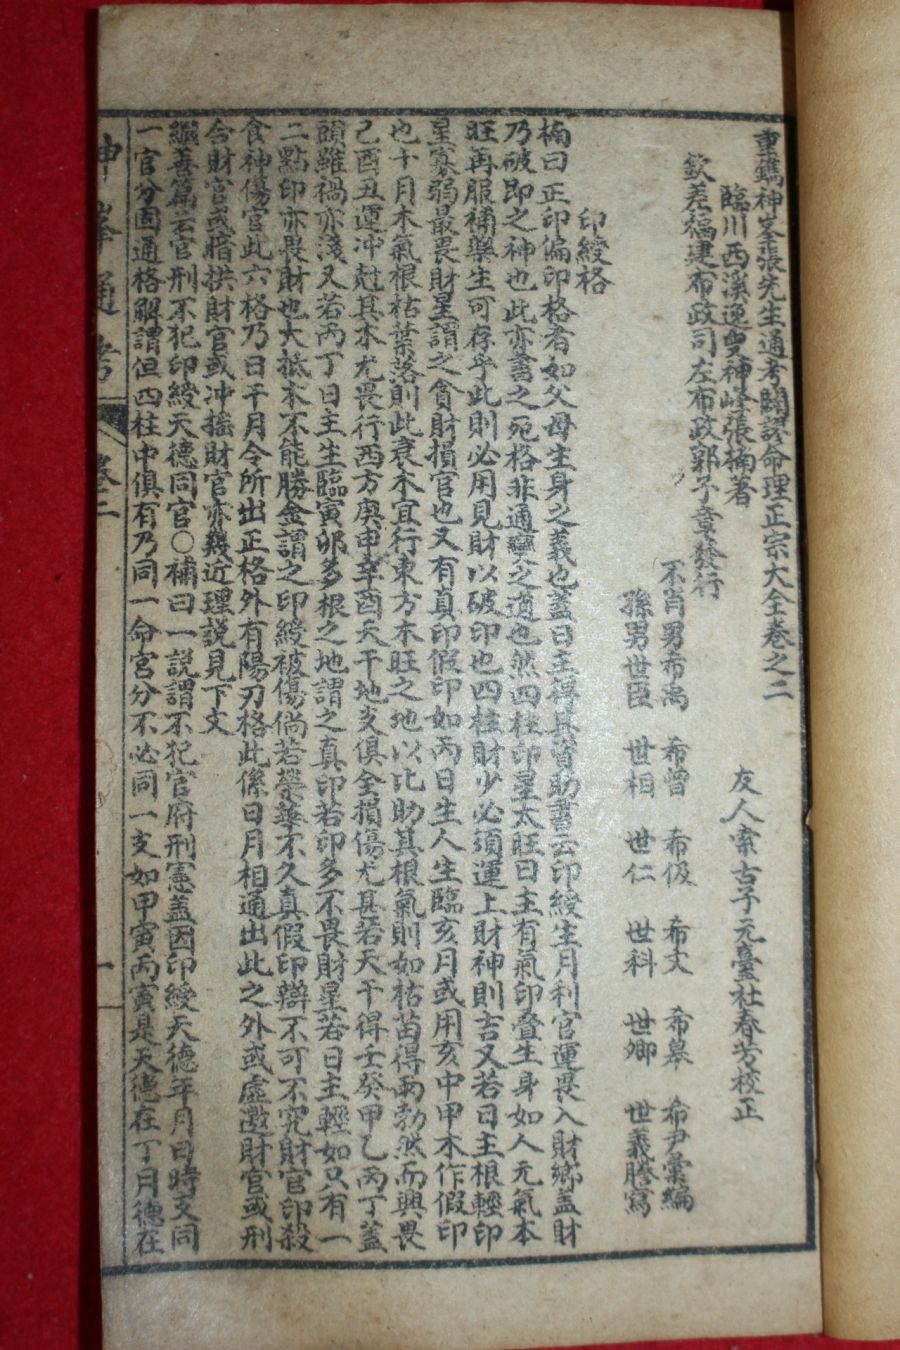 重鐫神峯張先生通考闢謬命理正宗大全卷之二
臨川西溪逸叟神峰張楠著
友人索古子元臺社春芳校正
欽差福建布政司左布政郭子章發行
不肖男希禹 希曾 希伋 希文 希皋 希尹彙編
孫男世臣 世相 世仁 世科 世卿 世義謄寫
印綬格
楠曰正印偏印格者如父母生身之義也蓋日主得其資助書云印綬生月利官運畏入財鄉蓋財
乃破印之神也此亦書之死格非通變之道也然四柱印星太旺日主有氣印疊生身如人元氣本
旺再服補藥生可存乎此則必用見財以破印也四柱財少必須運上財神則吉又若日主根輕印
星寡弱最畏財星謂之貪財損官也又有真印假印如丙日生人生臨亥月或用亥中甲木作假印
也十月木氣根枯葉落則此衰木宜行東方木旺之地以比助其根氣則如枯苗得雨勃然而興畏
己酉丑運冲尅其木尤畏行西方庚申辛酉天干地支俱全損傷尤甚若天干得壬癸甲乙丙丁蓋
頭雖禍亦淺又若丙丁日主生臨寅卯多根之地謂之真印若印多不畏財星若日主輕如只有一
二點印亦畏財也大抵木不能勝金謂之印綬被傷倘若榮華不久真假印辯不可不究財官印殺
食神傷官此六格乃日干月令所出正格外有陽刃格此係日月相通出此之外或虛邀財官或刑
合財官或暗拱財官或冲搖財官亦幾近理說見下文
繼善篇云官刑不犯印綬天德同官〇補曰一說謂不犯官府刑憲蓋因印綬天德年月日時支同
一官分固通格解謂但四柱中俱有乃同一命宮分不必同一支如甲寅丙寅是天德在丁月德在
神峯通考 卷二 一